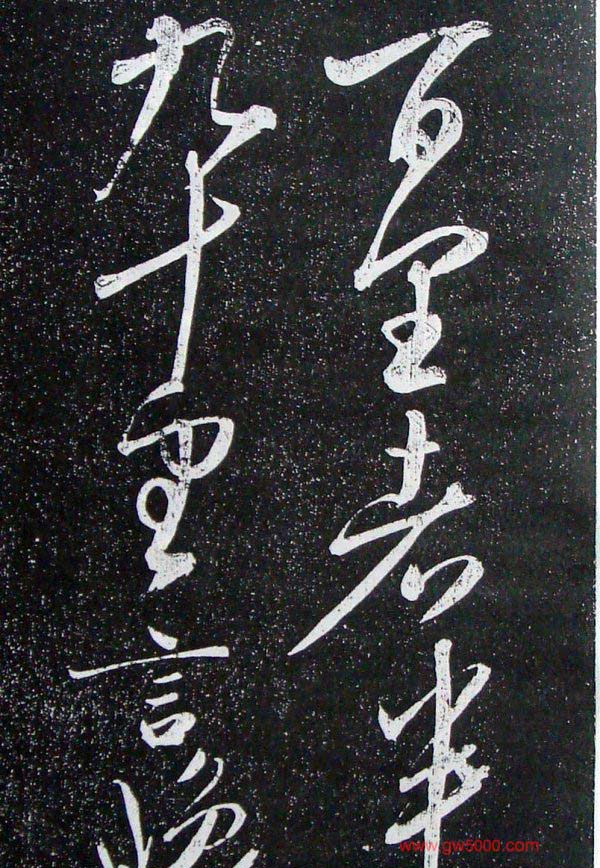 百里者半
九十里言
www.gw5000.com